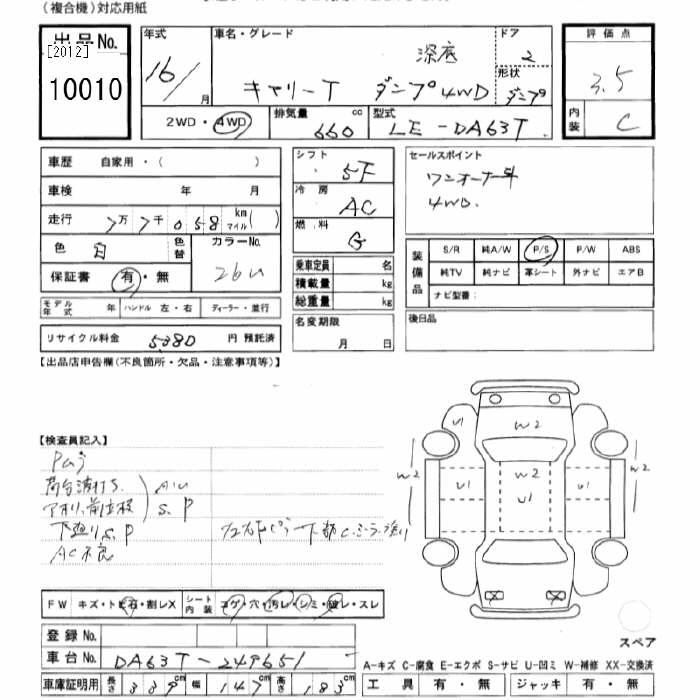 (複合機)対応用紙
出品No.
[2012]
10010
年式
16/
月
車名・グレード
深底
キャリーT ダンプ4WD
ドア
2
形状
ダンプ
評価点
3.5
内装
C
2WD・4WD
排気量
660
cc
型式
LE-DA63T
車歴 自家用・( )
車検 年 月
走行 7万 7千 0 5 8 km マイル( )
色 白
色替
カラーNo.
26U
保証書 有・無
モデル年式 年 ハンドル 左・右 ディーラー・並行
リサイクル料金 5380 円 預託済
シフト
5F
冷房
AC
燃料
G
乗車定員 名
積載量 kg
総重量 kg
名変期限
月 日
セールスポイント
ワンオーナー車
4WD.
装備品
S/R 純A/W P/S P/W ABS
純TV 純ナビ 革シート 外ナビ エアB
ナビ型番:
後日品
【出品店申告欄(不良箇所・欠品・注意事項等)】
【検査員記入】
荷台波打ち.
アオリ、前立板
AU
S. P
下廻りS. P
AC不良
下部C.
FW キズ・トビ石・割レX シート内装 コゲ・穴・汚レ・シミ・破レ・スレ
登録No.
車台No. DA63T-249651
車庫証明用 長さ 339cm 幅 147cm 高さ 183cm
U1
W2
W2
W2
W2
U1
U1
U1
スペア
A-キズ C-腐食 E-エクボ S-サビ U-凹ミ W-補修 XX-交換済
工具 有・無 ジャッキ 有・無